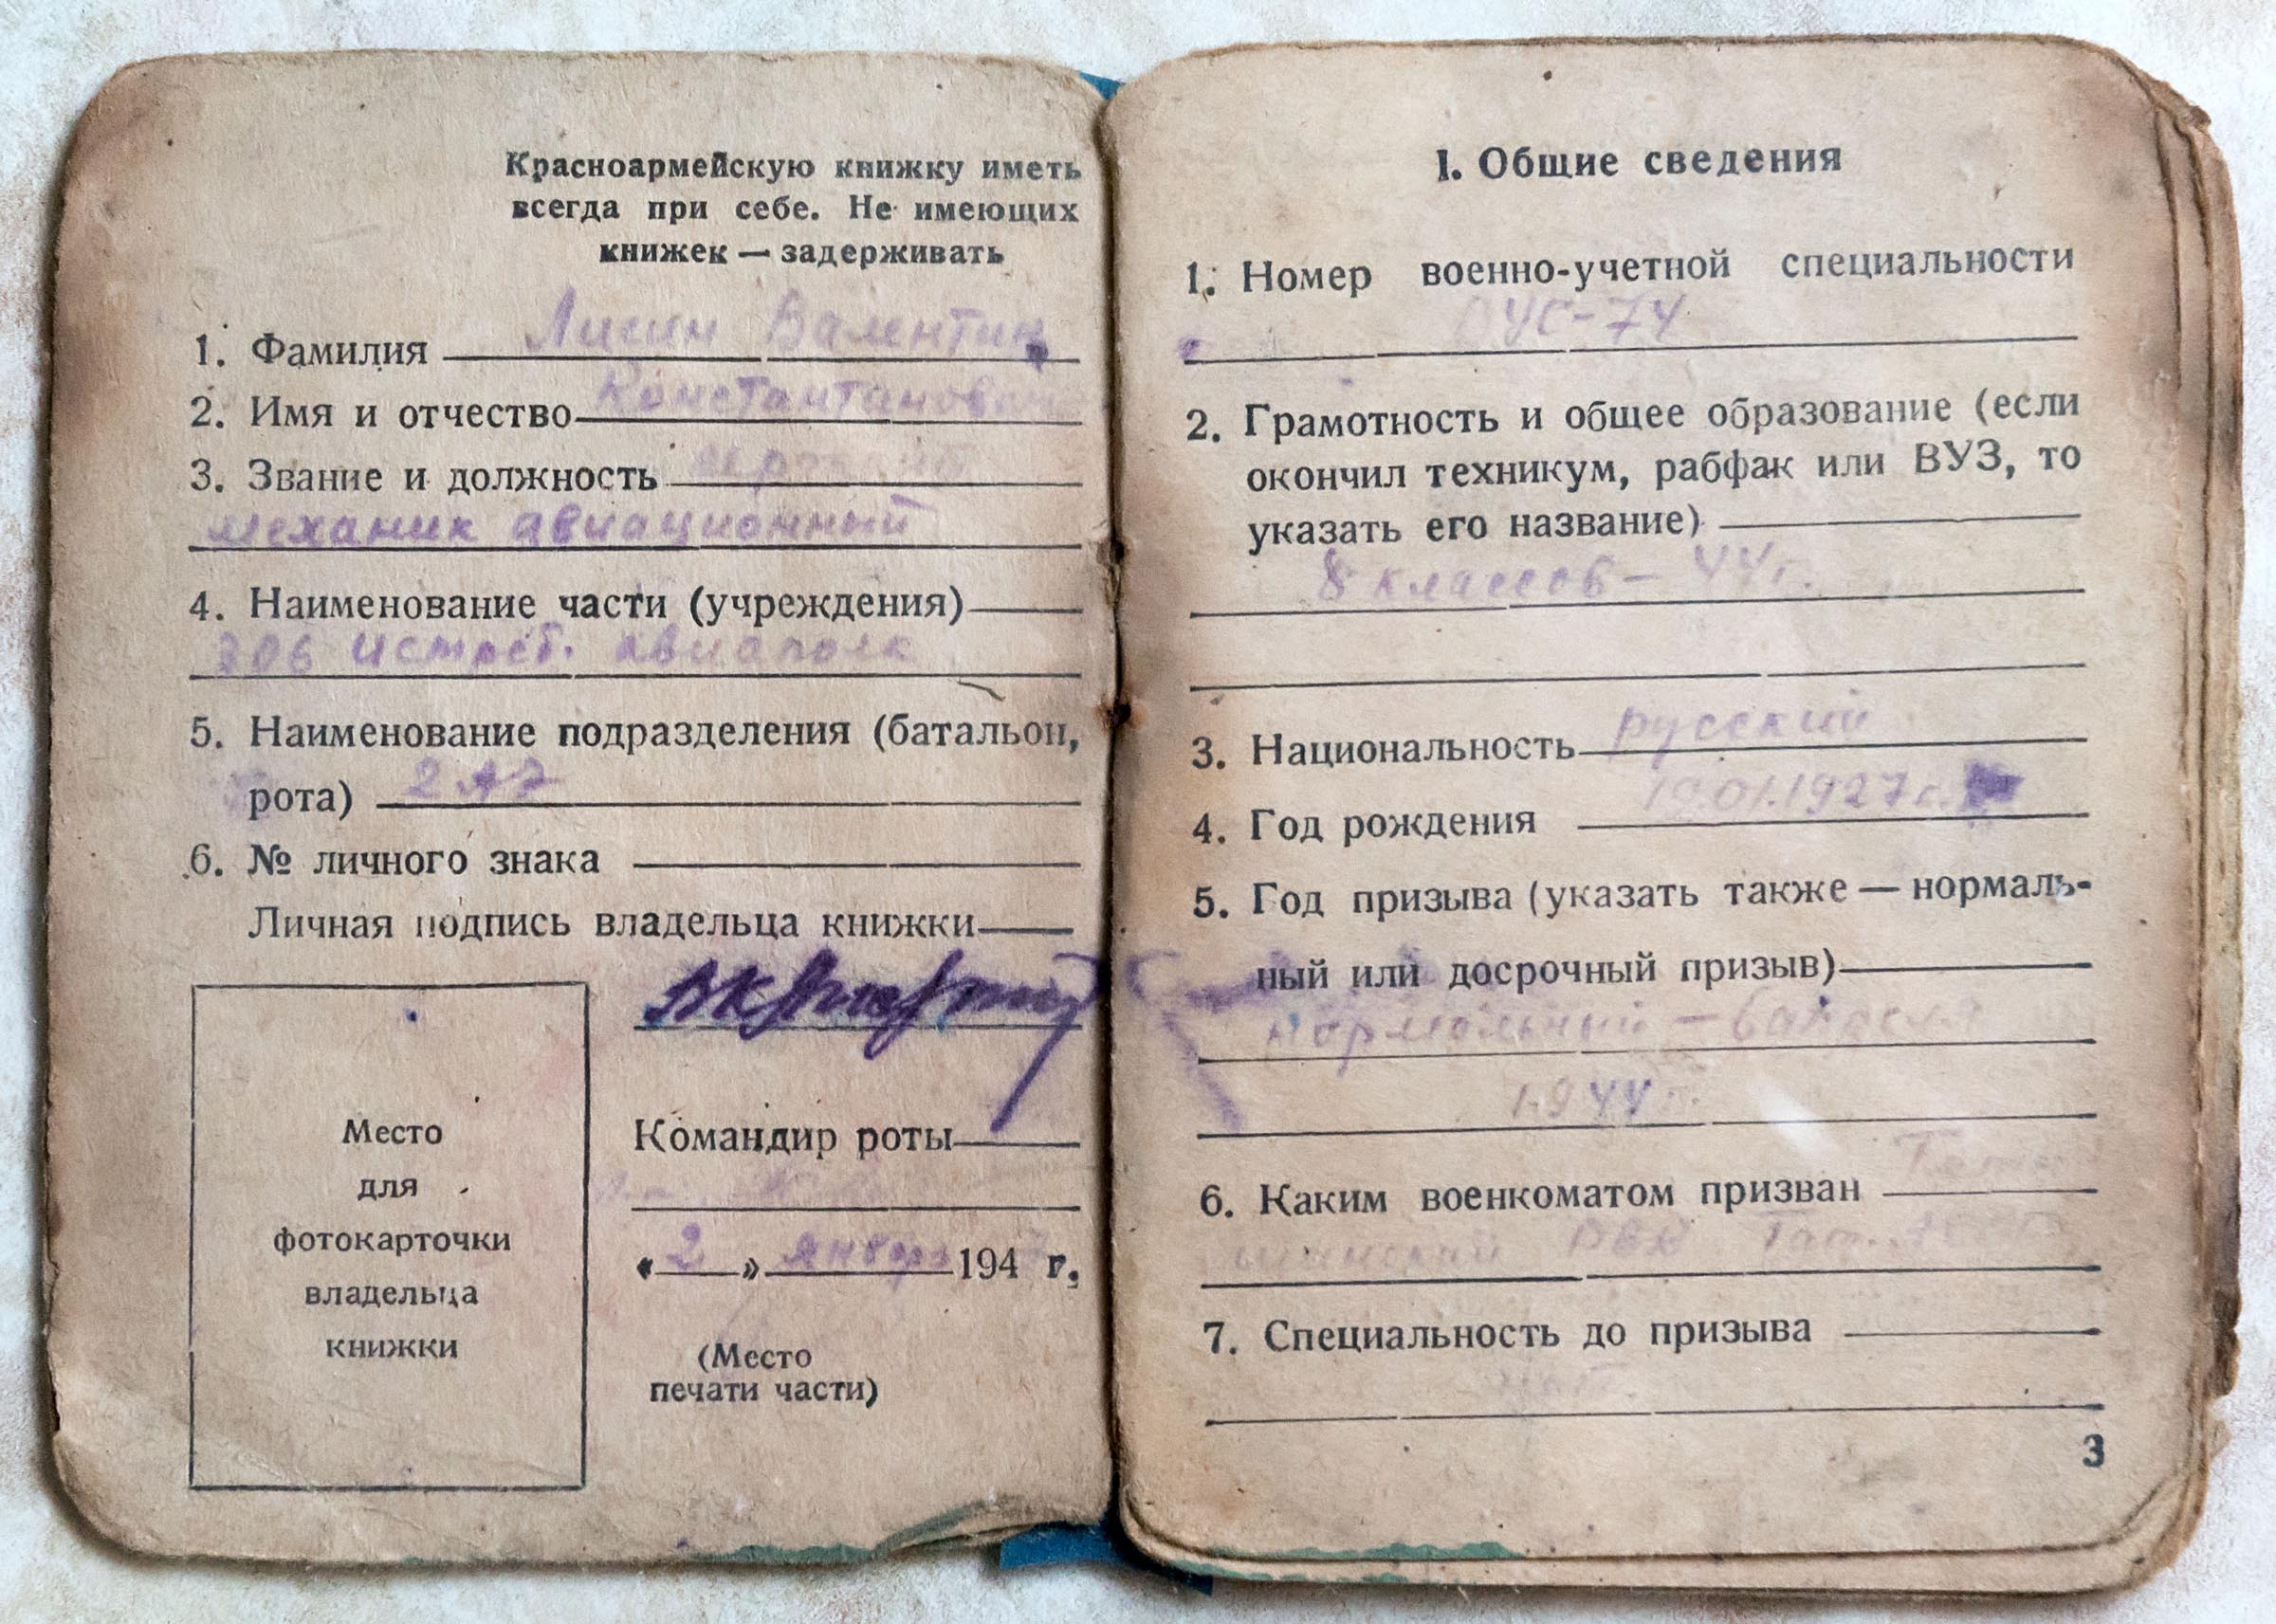 Красноармейскую книжку иметь
всегда при себе. Не имеющих
книжек — задерживать
1. Фамилия Лисин Валентин
2. Имя и отчество Константинович
3. Звание и должность
механик авиационный
4. Наименование части (учреждения)
306 истреб. авиаполк
5. Наименование подразделения (батальон,
рота) 2 АЭ
6. № личного знака
Личная подпись владельца книжки
Место
для
фотокарточки
владельца
книжки
Командир роты
«2» январь 194 г.
(Место
печати части)
I. Общие сведения
1. Номер военно-учетной специальности
ВУС-74
2. Грамотность и общее образование (если
окончил техникум, рабфак или ВУЗ, то
указать его название)
8 классов — 44 г.
3. Национальность русский
4. Год рождения
5. Год призыва (указать также — нормаль-
ный или досрочный призыв)
нормальный —
1944 г.
6. Каким военкоматом призван
РВК
7. Специальность до призыва
3